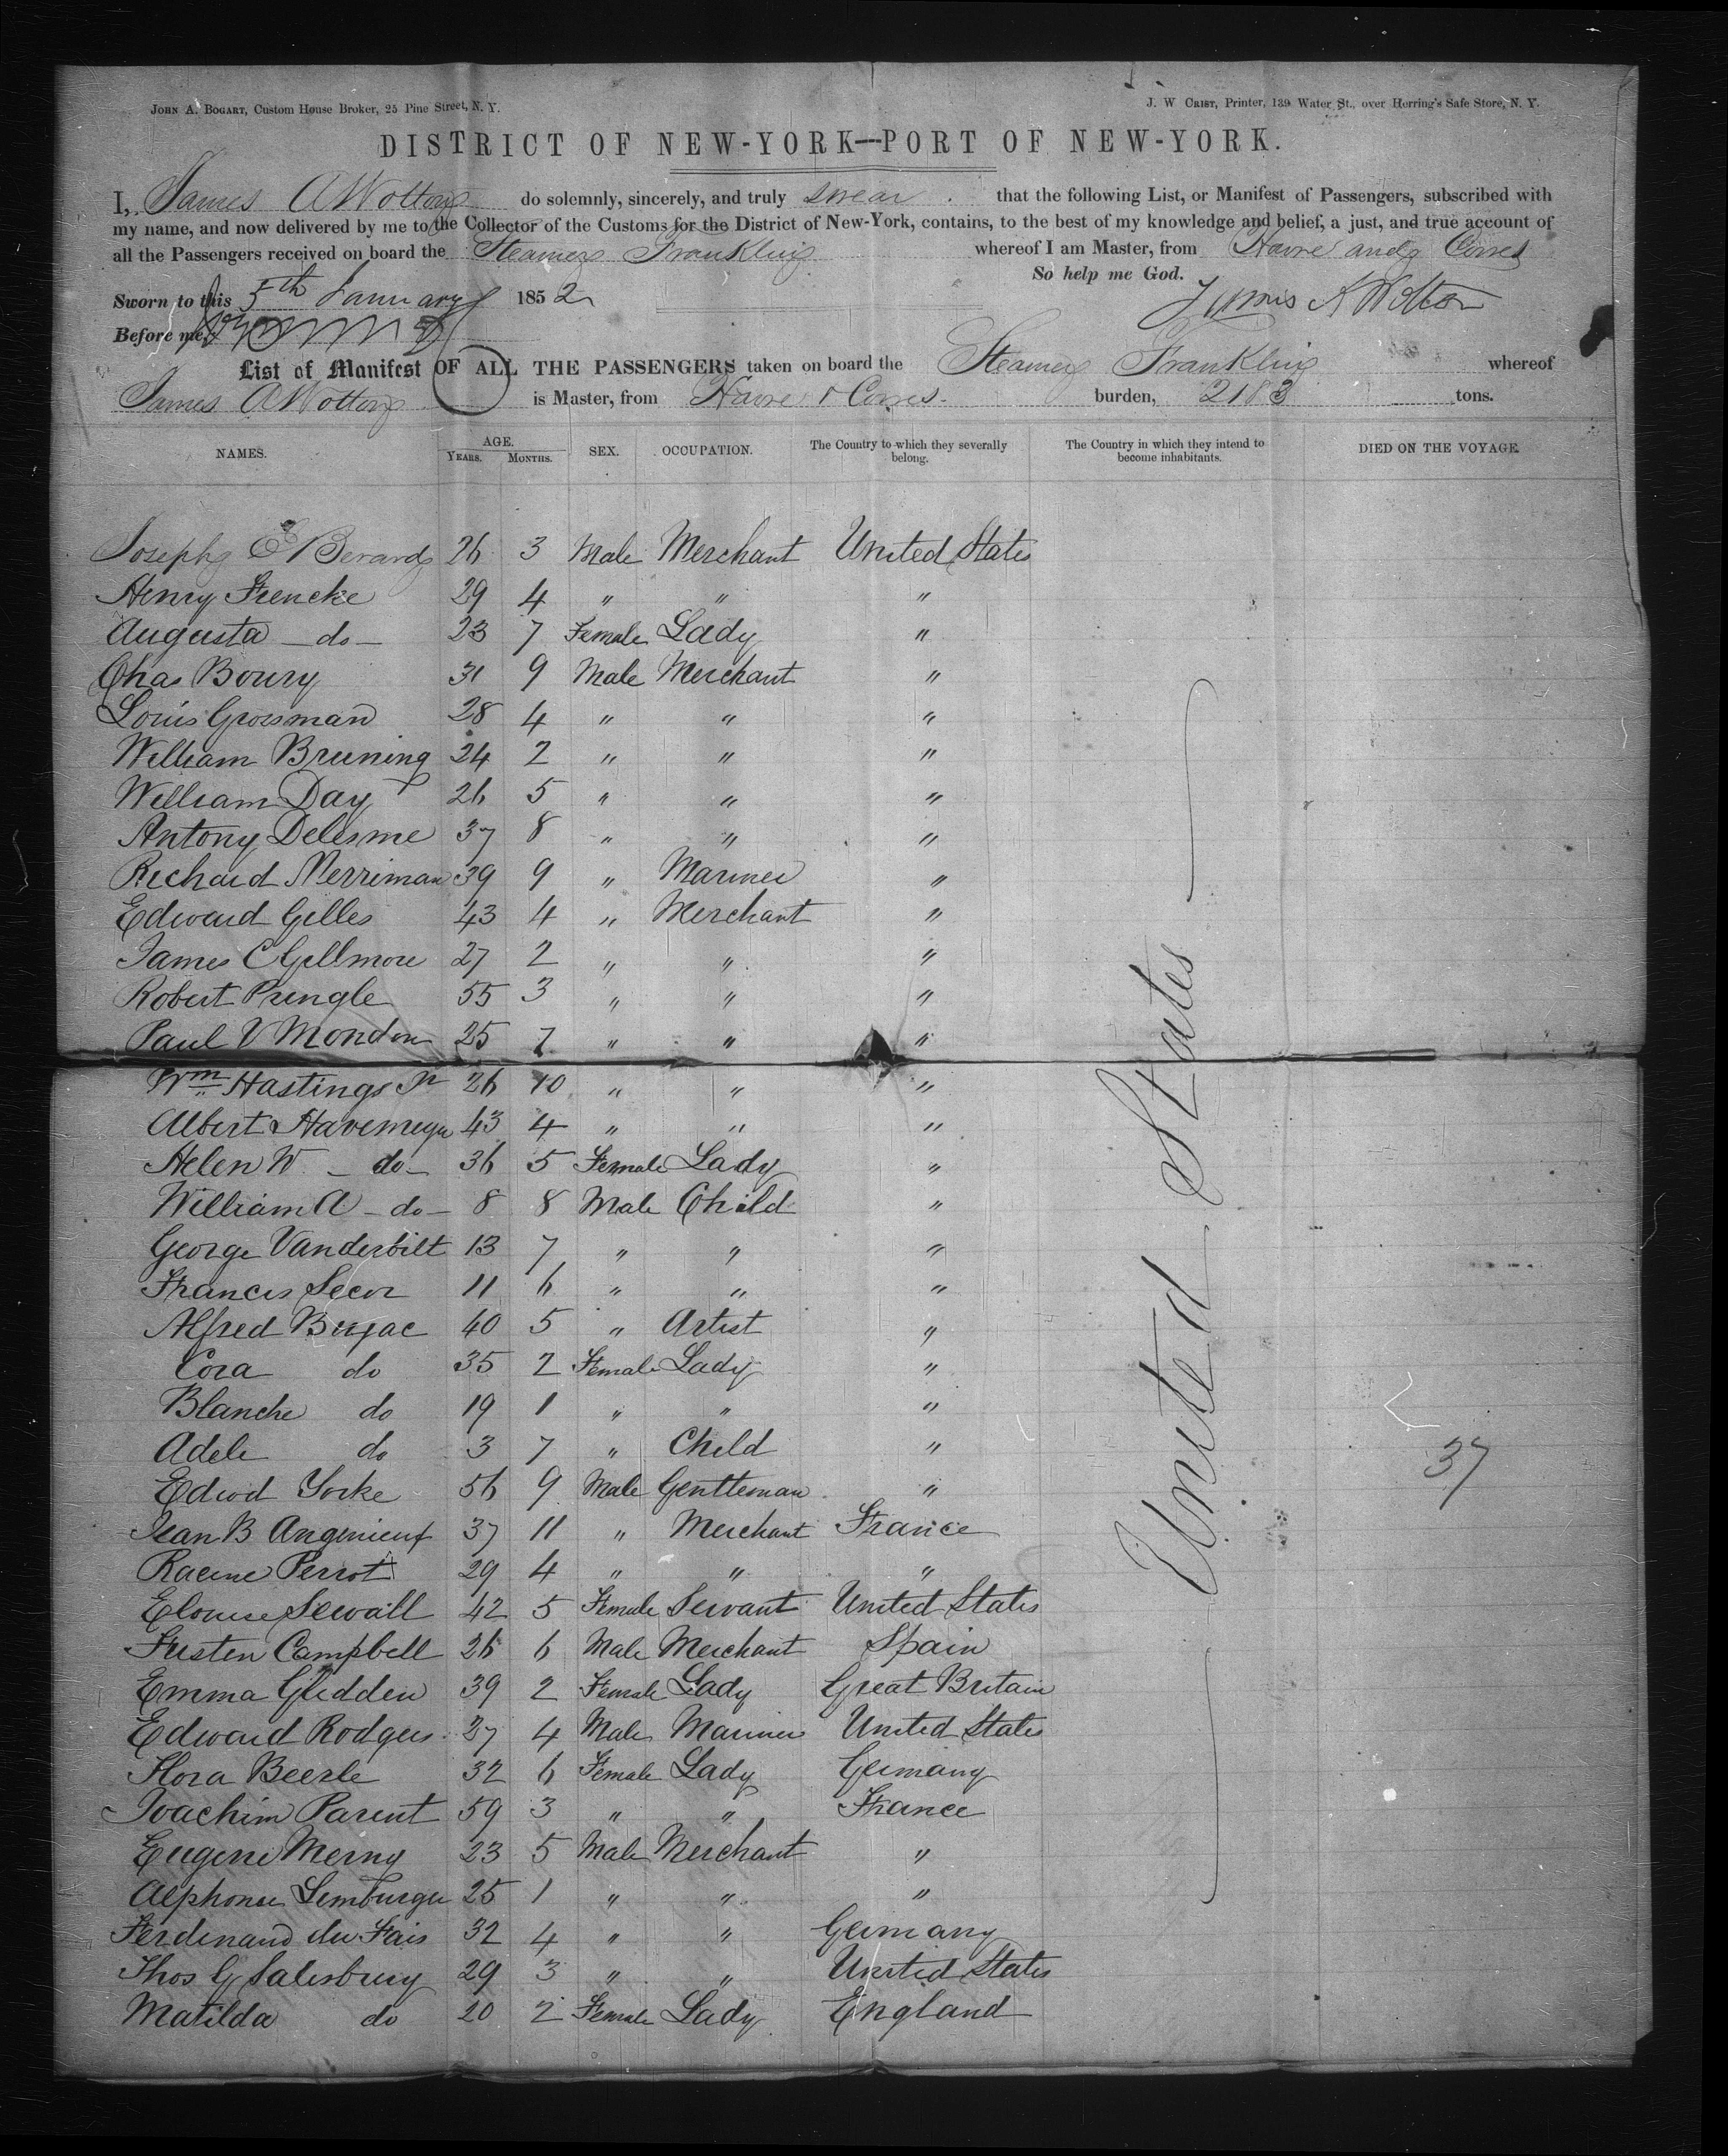 JOHN A. BOGART, Custom House Broker, 25 Pine Street, N. Y.
J. W CRIST, Printer, 139 Water St., over Herring's Safe Store, N. Y.
DISTRICT OF NEW-YORK—PORT OF NEW-YORK.
I, James A Wotton do solemnly, sincerely, and truly swear that the following List, or Manifest of Passengers, subscribed with
my name, and now delivered by me to the Collector of the Customs for the District of New-York, contains, to the best of my knowledge and belief, a just, and true account of
all the Passengers received on board the Steamer Franklin whereof I am Master, from Havre and Cowes
So help me God.
Sworn to this 5th January 1852
James A Wotton
Before me,
List of Manifest OF ALL THE PASSENGERS taken on board the Steamer Franklin whereof
James A Wotton is Master, from Havre & Cowes. burden, 2183 tons.
NAMES. AGE. YEARS. MONTHS. SEX. OCCUPATION. The Country to which they severally belong. The Country in which they intend to become inhabitants. DIED ON THE VOYAGE.
Joseph E Berard 26 3 Male Merchant United States
Henry Frencke 29 4 " " "
Augusta - do - 23 7 Female Lady "
Chas Boury 31 9 Male Merchant "
Louis Grossman 28 4 " " "
William Bruning 24 2 " " "
William Day 26 5 " " "
Antony Delesme 37 8 " " "
Richard Merriman 39 9 " Mariner "
Edward Gilles 43 4 " Merchant "
James C Gillmore 27 2 " " "
Robert Pringle 55 3 " " "
Paul V Mondon 25 7 " " "
Wm Hastings Jr 26 10 " " "
Albert Havemeyer 43 4 " " "
Helen W - do - 36 5 Female Lady "
William A - do - 8 8 Male Child "
George Vanderbilt 13 7 " " "
Francis Secor 11 6 " " "
Alfred Bujac 40 5 " Artist "
Cora do 35 2 Female Lady "
Blanche do 19 1 " " "
Adele do 3 7 " Child "
Edwd Yorke 56 9 Male Gentleman "
Jean B Angenieux 37 11 " Merchant France
Racine Perrot 29 4 " " "
Elouise Sewall 42 5 Female Servant United States
Justen Campbell 26 6 Male Merchant Spain
Emma Glidden 39 2 Female Lady Great Britain
Edward Rodgers 27 4 Male Mariner United States
Flora Beerle 32 6 Female Lady Germany
Joachim Parent 59 3 " " France
Eugene Merny 23 5 Male Merchant "
Alphonse Lemburger 25 1 " " "
Ferdinand du Fais 32 4 " " Germany
Thos G Salisbury 29 3 " " United States
Matilda do 20 2 Female Lady England
United States
37